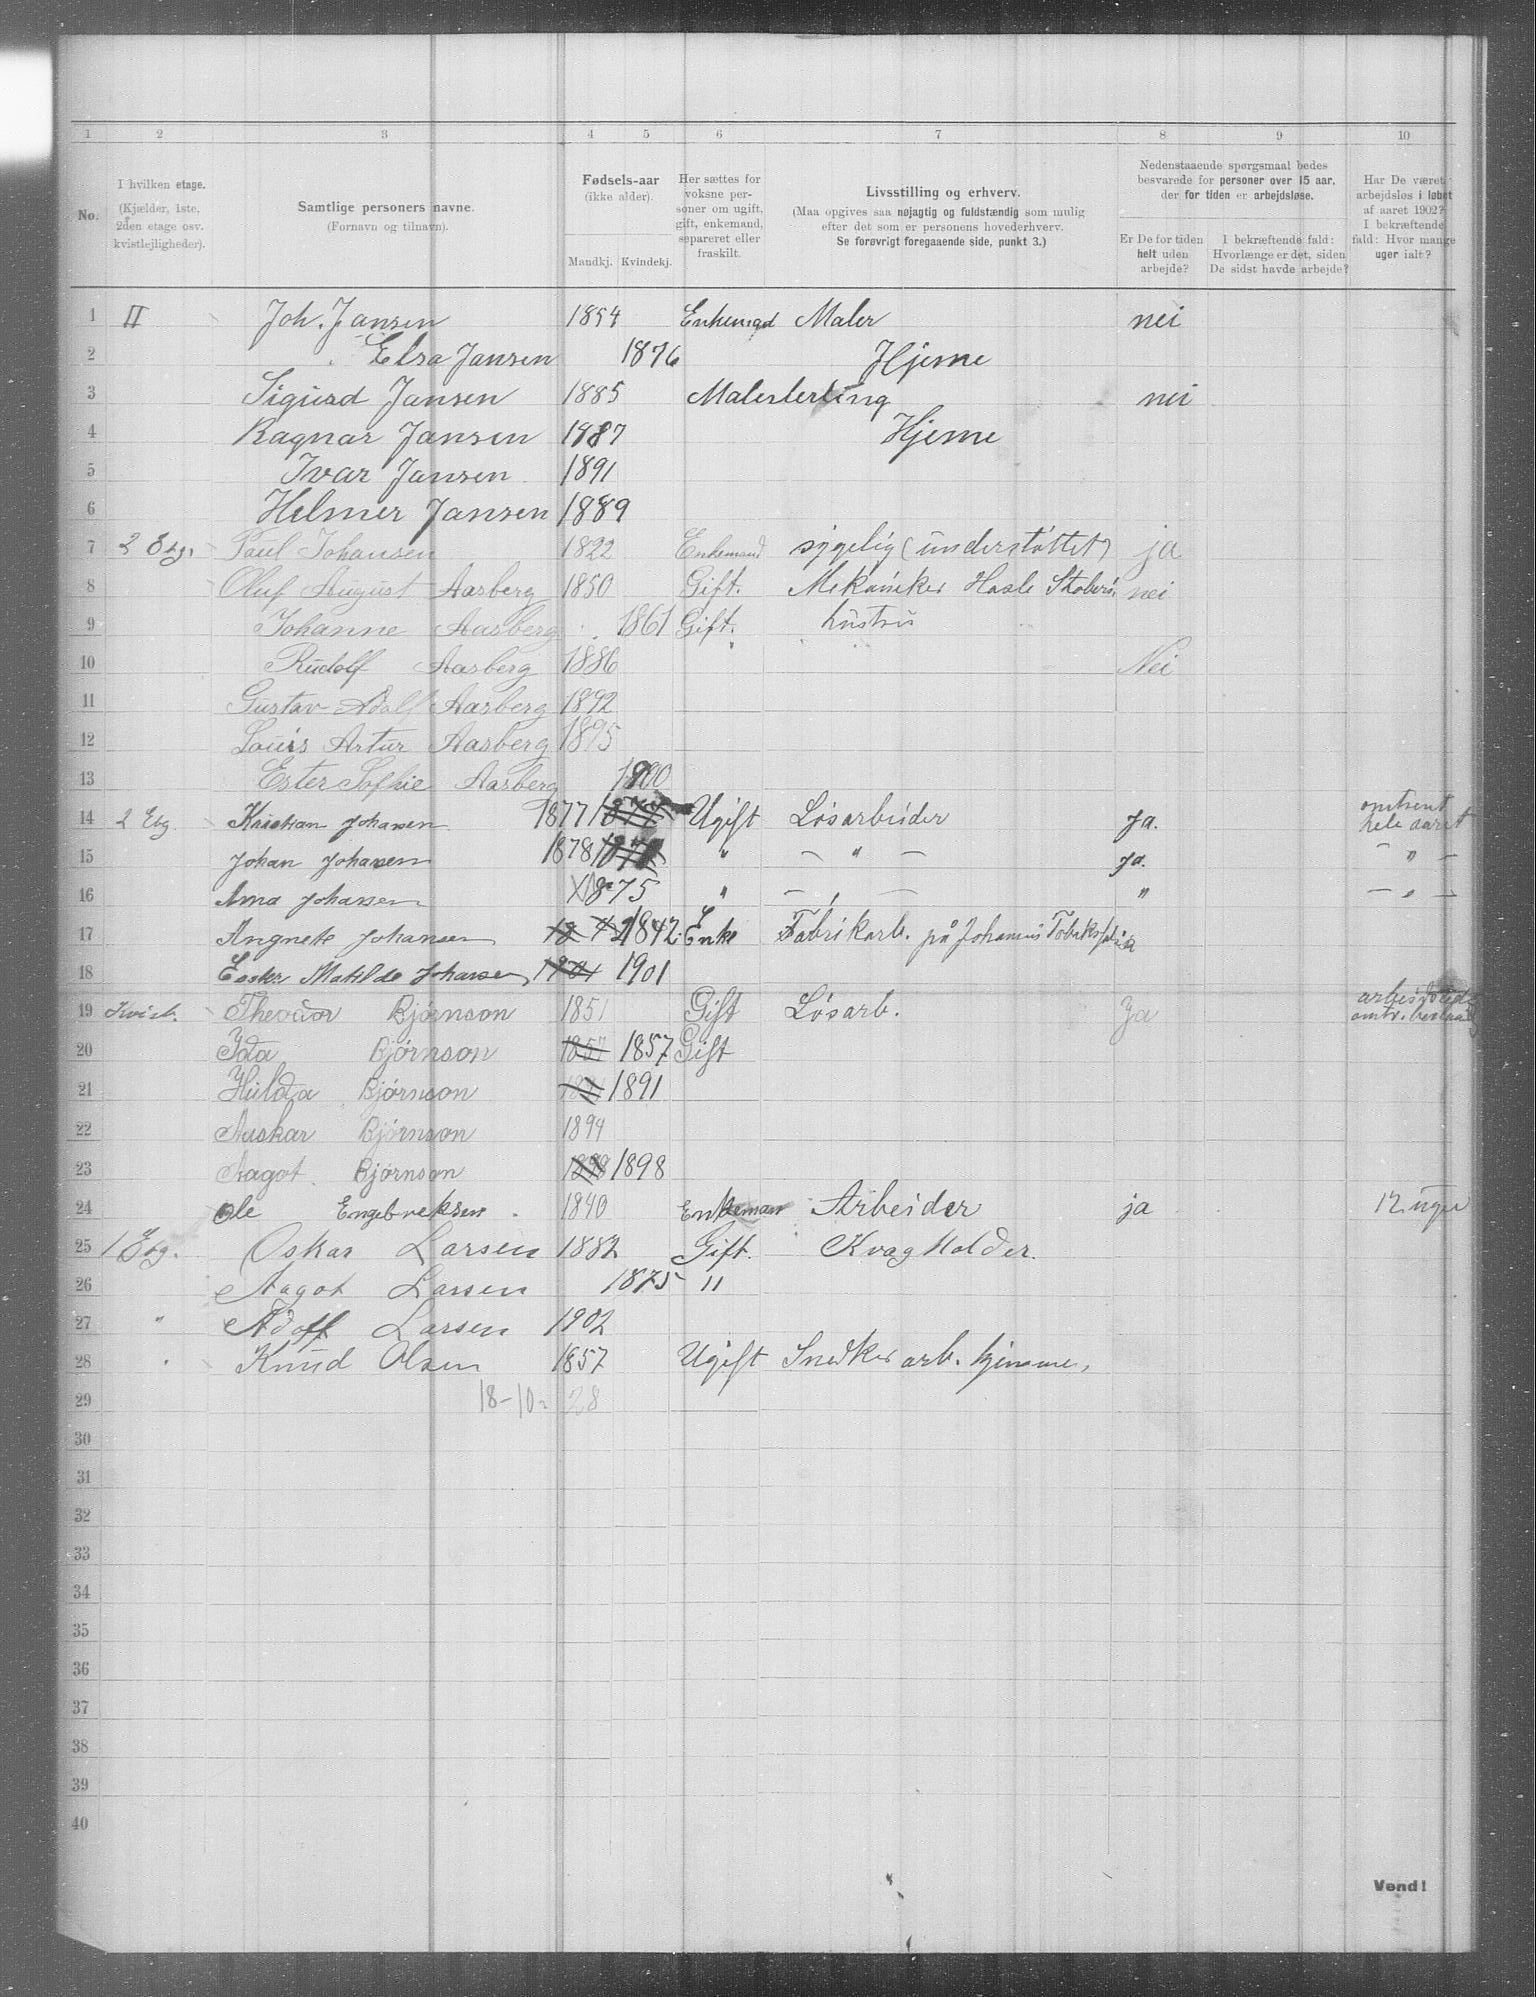 1 2 3 4 5 6 7 8 9 10
No.
I hvilken etage.
(Kjælder, 1ste, 2den etage osv. kvistlejligheder).
Samtlige personers navne.
(Fornavn og tilnavn).
Fødsels-aar
(ikke alder).
Mandkj. Kvindekj.
Her sættes for voksne personer om ugift, gift, enkemand, separeret eller fraskilt.
Livsstilling og erhverv.
(Maa opgives saa nøjagtig og fuldstændig som mulig efter det som er personens hovederhverv.
Se forøvrigt foregaaende side, punkt 3.)
Nedenstaaende spørgsmaal bedes besvarede for personer over 15 aar, der for tiden er arbejdsløse.
Er De for tiden helt uden arbejde?
I bekræftende fald: Hvorlænge er det, siden De sidst havde arbejde?
Har De været arbejdsløs i løbet af aaret 1902? I bekræftende fald: Hvor mange uger ialt?
1 II Joh. Jansen 1854 Enkemad Maler nei
2 Elsa Jansen 1876 Hjeme
3 Sigurd Jansen 1885 Malerlerling nei
4 Ragnar Jansen 1887 Hjeme
5 Ivar Jansen 1891
6 Helmer Jansen 1889
7 2 Etg. Paul Johansen 1822 Enkemand sygelig (understøttet) ja
8 Oluf August Aasberg 1850 Gift. Mekaniker Hasle nei
9 Johanne Aasberg 1861 Gift. hustru
10 Rudolf Aasberg 1886 Nei
11 Gustav Adolf Aasberg 1892
12 Louis Artur Aasberg 1895
13 Ester Sofhie Aasberg 1900
14 2 Etg. Kristian Johansen 1877 1877 Ugift Løsarbeider ja. omtrent hele aaret
15 Johan Johansen 1878 1878 " — " — ja. — " —
16 Anna Johansen 1875 " — " — " — " —
17 Angnete Johansen 1842 Enke Fabrikarb. på Johansens Tobaksfabrik
18 Ester Matilde Johansen 1901 1901
19 Kvist. Theodor Bjørnson 1851 Gift Løsarb. Ja
20 Ida Bjørnson 1857 1857 Gift
21 Hulda Bjørnson 1891 1891
22 Auskar Bjørnson 1894
23 Aagot Bjørnson 1898 1898
24 Ole Engebreksen . 1840 Enkeman Arbeider ja 12 uger
25 1 Etg. Oskar Larsen 1882 Gift. Kvagholder.
26 Aagot Larsen 1875 "
27 " Adolf Larsen 1902
28 " Knud Olsen 1857 Ugift Snedker arb. hjemme,
29 18-10= 28
30
31
32
33
34
35
36
37
38
39
40
Vend!